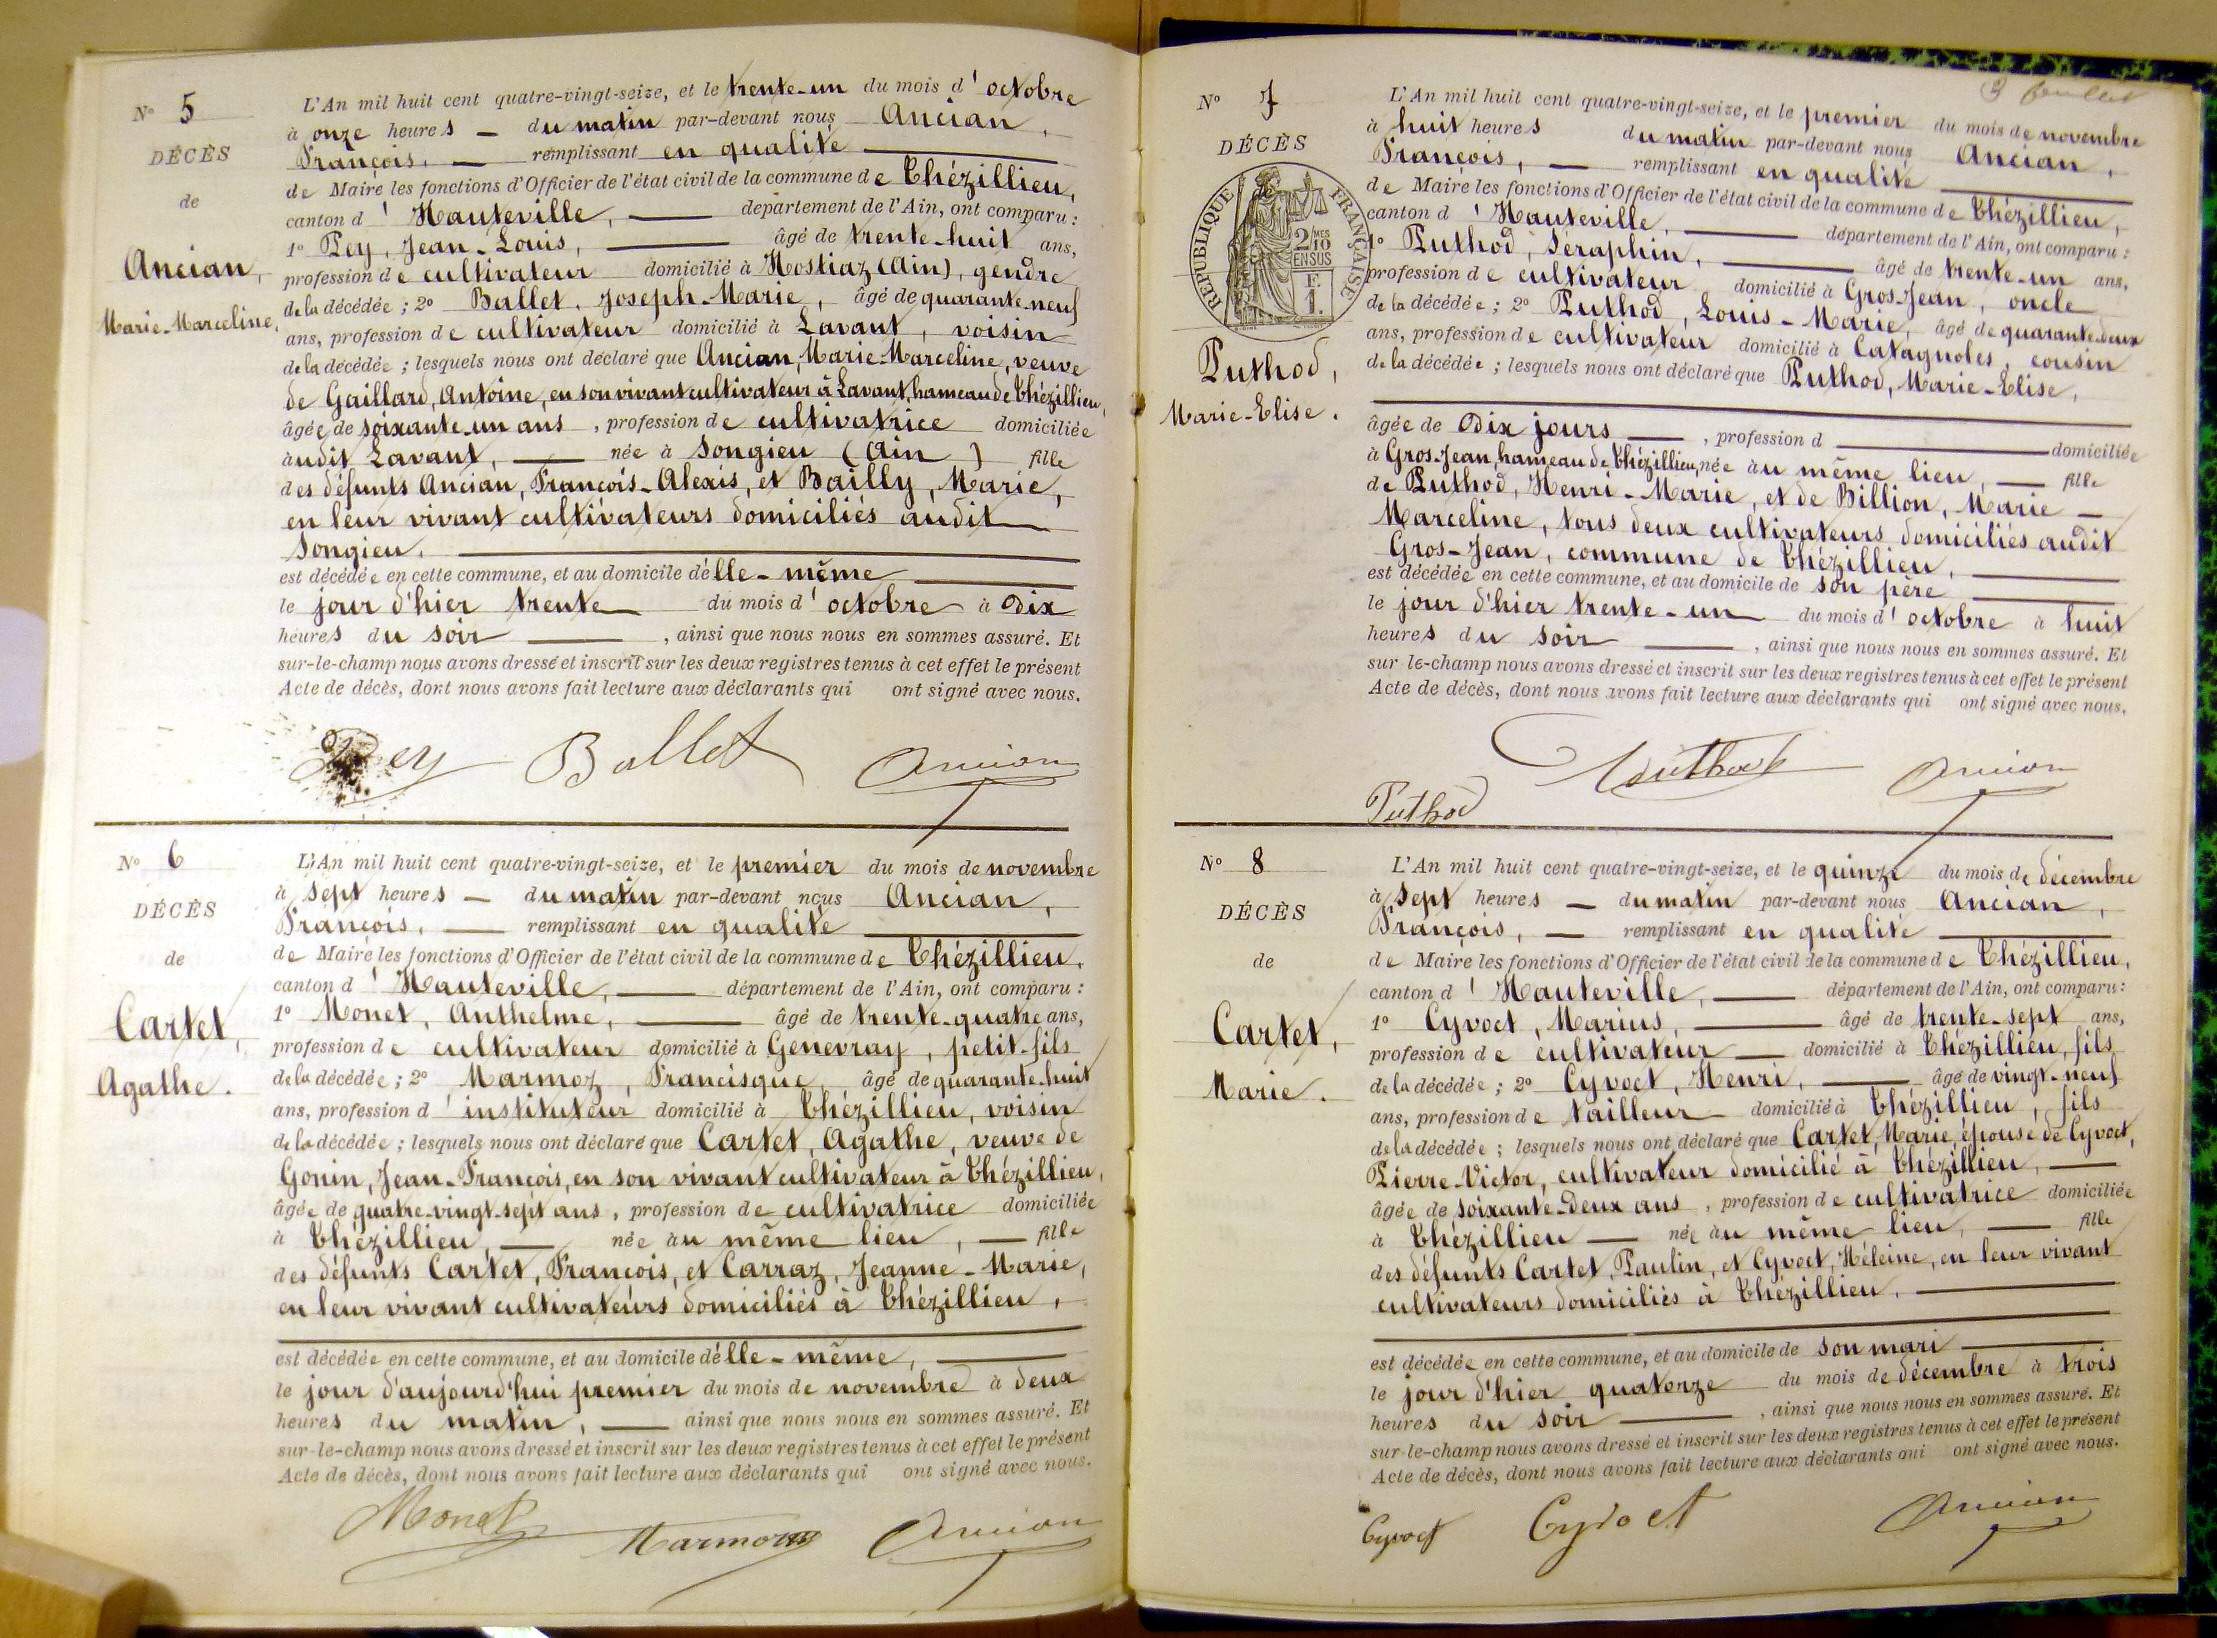 N° 5
DÉCÈS
de
Ancian,
Marie-Marceline,
L'An mil huit cent quatre-vingt-seize, et le trente-un du mois d'octobre
à onze heures — du matin par-devant nous Ancian,
François, — remplissant en qualité
de Maire les fonctions d'Officier de l'état civil de la commune de Thézillieu,
canton d'Hauteville, — département de l'Ain, ont comparu :
1° Pey, Jean-Louis, — âgé de trente-huit ans,
profession de cultivateur domicilié à Hostiaz (Ain), gendre
de la décédée ; 2° Ballet, Joseph-Marie, âgé de quarante-neuf
ans, profession de cultivateur domicilié à Lavant, voisin
de la décédée ; lesquels nous ont déclaré que Ancian, Marie-Marceline, veuve
de Gaillard, Antoine, en son vivant cultivateur à Lavant, hameau de Thézillieu,
âgée de soixante-un ans, profession de cultivatrice domiciliée
audit Lavant, — née à Songieu (Ain) fille
des défunts Ancian, François-Alexis, et Bailly, Marie,
en leur vivant cultivateurs domiciliés audit
Songieu.
est décédée en cette commune, et au domicile d'elle-même
le jour d'hier trente du mois d'octobre à dix
heures du soir — , ainsi que nous nous en sommes assuré. Et
sur-le-champ nous avons dressé et inscrit sur les deux registres tenus à cet effet le présent
Acte de décès, dont nous avons fait lecture aux déclarants qui ont signé avec nous.
Pey Ballet Ancian
N° 6
DÉCÈS
de
Cartet,
Agathe.
L'An mil huit cent quatre-vingt-seize, et le premier du mois de novembre
à sept heures — du matin par-devant nous Ancian,
François, — remplissant en qualité
de Maire les fonctions d'Officier de l'état civil de la commune de Thézillieu,
canton d'Hauteville, — département de l'Ain, ont comparu :
1° Monet, Anthelme, — âgé de trente-quatre ans,
profession de cultivateur domicilié à Genevray, petit-fils
de la décédée ; 2° Marmoz, Francisque, âgé de quarante-huit
ans, profession d'instituteur domicilié à Thézillieu, voisin
de la décédée ; lesquels nous ont déclaré que Cartet, Agathe, veuve de
Gonin, Jean-François, en son vivant cultivateur à Thézillieu,
âgée de quatre-vingt-sept ans, profession de cultivatrice domiciliée
à Thézillieu, — née au même lieu, — fille
des défunts Cartet, François, et Carraz, Jeanne-Marie,
en leur vivant cultivateurs domiciliés à Thézillieu,
est décédée en cette commune, et au domicile d'elle-même,
le jour d'aujourd'hui premier du mois de novembre à deux
heures du matin, — ainsi que nous nous en sommes assuré. Et
sur-le-champ nous avons dressé et inscrit sur les deux registres tenus à cet effet le présent
Acte de décès, dont nous avons fait lecture aux déclarants qui ont signé avec nous.
Monet Marmoz Ancian
3 feuillet
N° 7
DÉCÈS
RÉPUBLIQUE FRANÇAISE
2/10 MES
EN SUS
F.
1.
Puthod,
Marie-Elise.
L'An mil huit cent quatre-vingt-seize, et le premier du mois de novembre
à huit heures du matin par-devant nous Ancian,
François, — remplissant en qualité
de Maire les fonctions d'Officier de l'état civil de la commune de Thézillieu,
canton d'Hauteville, — département de l'Ain, ont comparu :
1° Puthod, Séraphin, — âgé de trente-un ans,
profession de cultivateur domicilié à Gros-Jean, oncle
de la décédée ; 2° Puthod, Louis-Marie, âgé de quarante-deux
ans, profession de cultivateur domicilié à Catagnoles, cousin
de la décédée ; lesquels nous ont déclaré que Puthod, Marie-Elise,
âgée de dix jours — , profession d — domiciliée
à Gros-Jean, hameau de Thézillieu, née au même lieu, — fille
de Puthod, Henri-Marie, et de Billion, Marie-
Marceline, tous deux cultivateurs domiciliés audit
Gros-Jean, commune de Thézillieu,
est décédée en cette commune, et au domicile de son père
le jour d'hier trente-un du mois d'octobre à huit
heures du soir — , ainsi que nous nous en sommes assuré. Et
sur le-champ nous avons dressé et inscrit sur les deux registres tenus à cet effet le présent
Acte de décès, dont nous avons fait lecture aux déclarants qui ont signé avec nous.
Puthod Puthod Ancian
N° 8
DÉCÈS
de
Cartet,
Marie.
L'An mil huit cent quatre-vingt-seize, et le quinze du mois de décembre
à sept heures — du matin par-devant nous Ancian,
François, — remplissant en qualité
de Maire les fonctions d'Officier de l'état civil de la commune de Thézillieu,
canton d'Hauteville, — département de l'Ain, ont comparu :
1° Cyvoct, Marius, — âgé de trente-sept ans,
profession de cultivateur — domicilié à Thézillieu, fils
de la décédée ; 2° Cyvoct, Henri, — âgé de vingt-neuf
ans, profession de tailleur domicilié à Thézillieu, fils
de la décédée ; lesquels nous ont déclaré que Cartet, Marie, épouse de Cyvoct,
Pierre-Victor, cultivateur domicilié à Thézillieu, —
âgée de soixante-deux ans, profession de cultivatrice domiciliée
à Thézillieu — née au même lieu, — fille
des défunts Cartet, Paulin, et Cyvoct, Héleine, en leur vivant
cultivateurs domiciliés à Thézillieu.
est décédée en cette commune, et au domicile de son mari
le jour d'hier quatorze du mois de décembre à trois
heures du soir — , ainsi que nous nous en sommes assuré. Et
sur-le-champ nous avons dressé et inscrit sur les deux registres tenus à cet effet le présent
Acte de décès, dont nous avons fait lecture aux déclarants qui ont signé avec nous.
Cyvoct Cyvoct Ancian